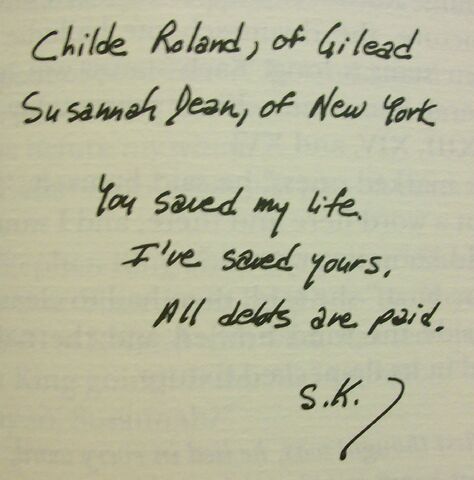 Childe Roland, of Gilead
Susannah Dean, of New York
You saved my life.
I've saved yours.
All debts are paid.
S.K.